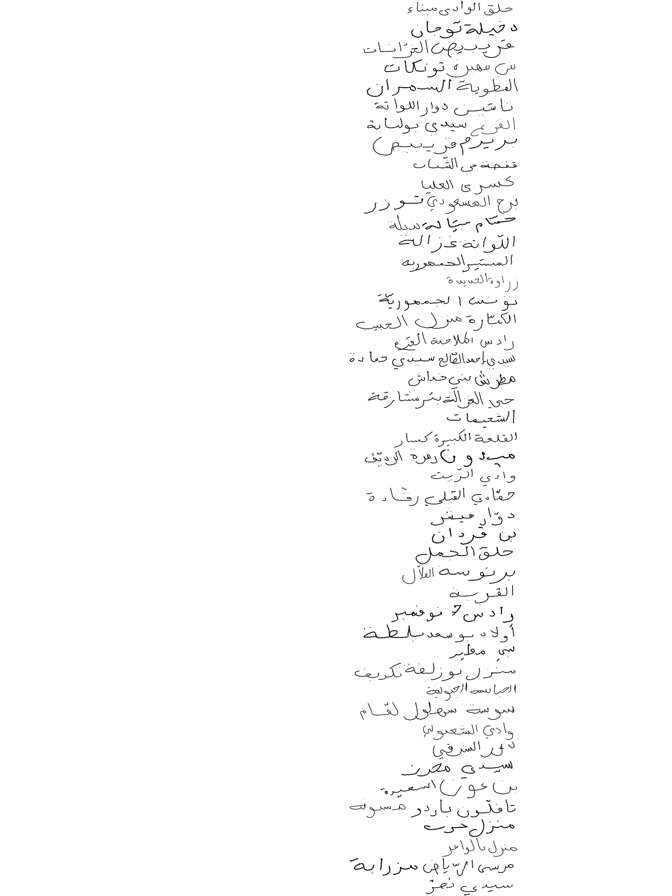 حلق الوادي ميناء
دخيلة توجان
قريبيص الخرّانات
بني مهيرة تونكات
المطوية السمران
تاشين دوار اللواتة
الفريع سيدي بولبابة
بريرم قريبيص
قفصة حي الشباب
كسرى العليا
برج المسعودي توزر
حسّام سيالة نبيلة
اللوانة غزالة
المنستير الجمهورية
زراوة الجديدة
تونس الجمهوريّة
الكبّارة منزل الحبيب
رادس الملاحة القرع
سيدي أحمد الصّالح سيدي حمادة
مطرش بني خداش
حي الغزالة بئر مشارقة
الشعيمات
القلعة الكبيرة كسار
ميدون زهرة الريف
وادي الزّيت
حفّادي القبلي رقادة
دوّار ميش
بن قردان
حلق الجمل
برنوسة العلال
القرية
رادس 7 نوفمبر
أولاد بوسعد بلطة
بني مطير
منزل بوزلفة تكريف
الحبابسة الجنوبية
سوسة سهلول لقام
وادي الشعبوني
لعزر الشرقي
سيدي محرز
بن عون السعيدة
تافلّون باردو مسيونة
منزل حرب
منزل بالواعر
مرسى الرياض مزرابة
سيدي نصر